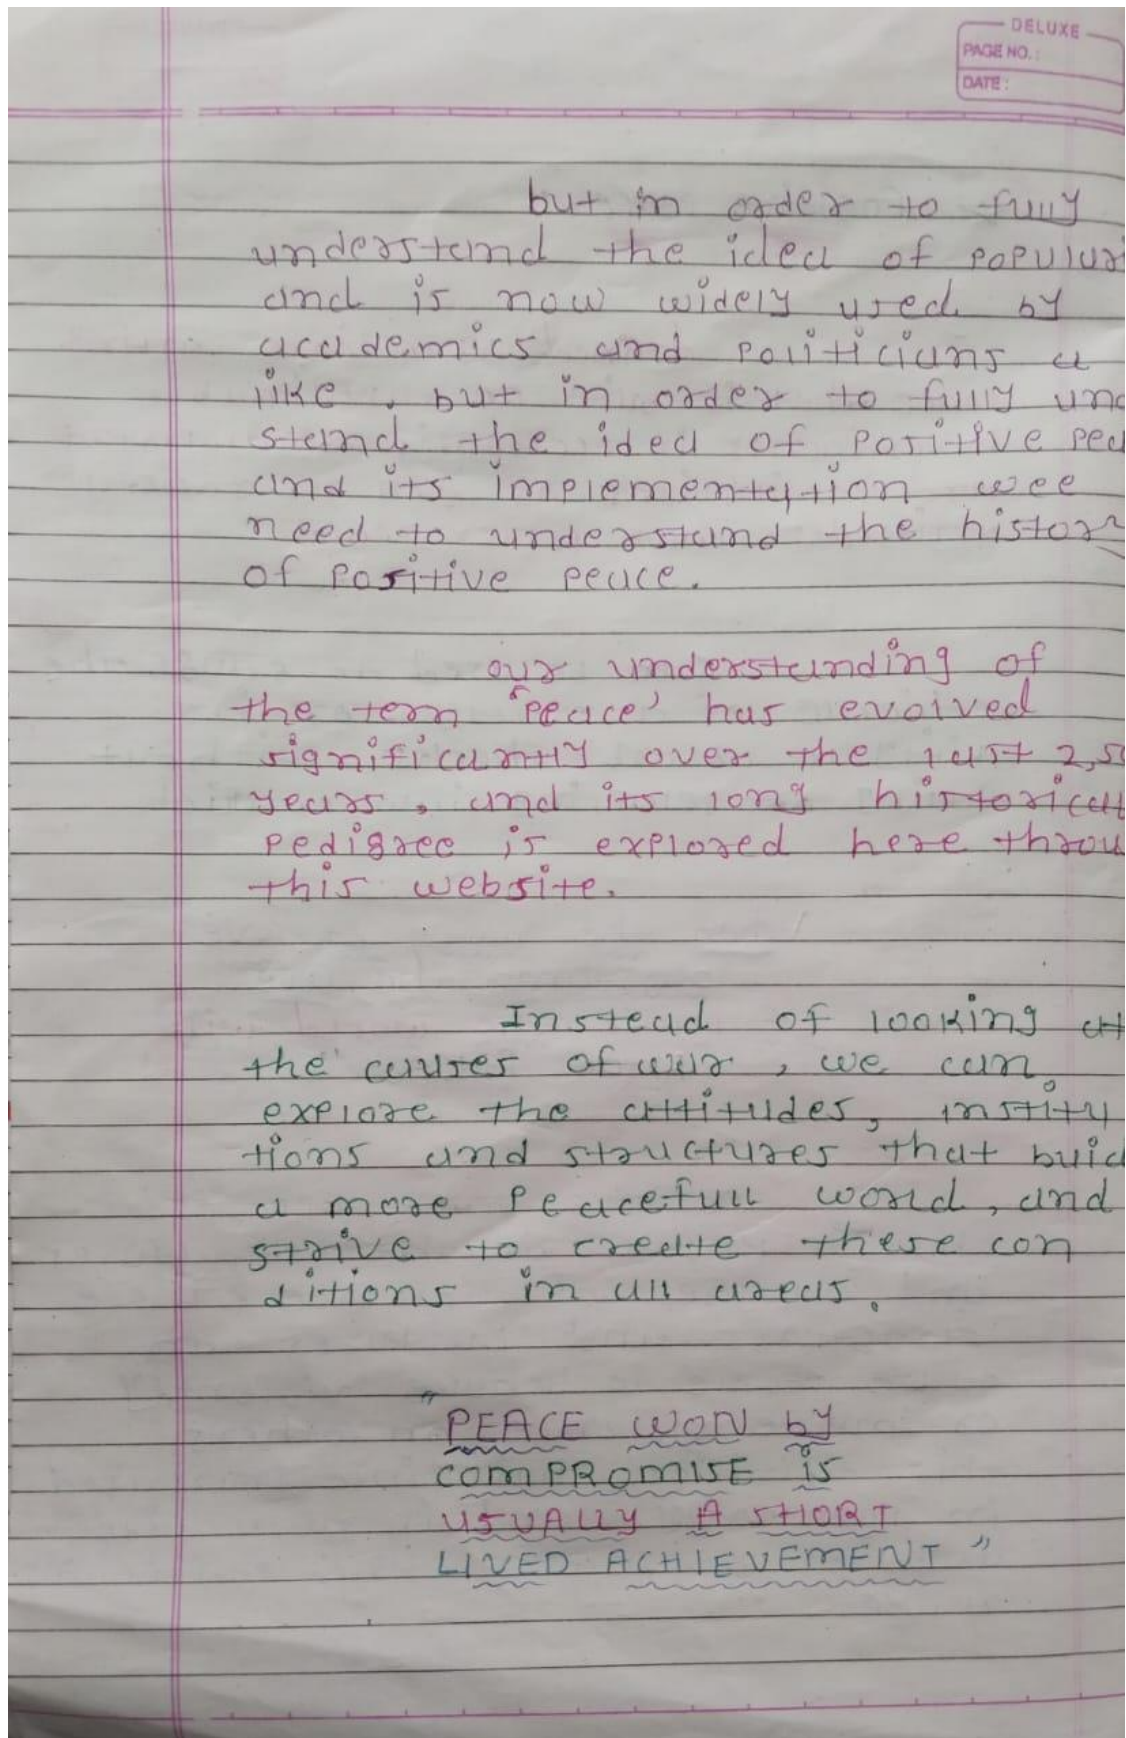 DELUXE
PAGE NO.:
DATE:
but in order to fully
understand the idea of popular
and is now widely used by
academics and politicians a
like, but in order to fully und
stand the idea of positive pea
and its implementation wee
need to understand the histor
of positive peace.
our understanding of
the term 'peace' has evolved
significantly over the last 2,50
years, and its long historical
pedigree is explored here throu
this website.
Instead of looking at
the causes of war, we can
explore the attitudes, institu
tions and structures that buid
a more peacefull world, and
strive to create these con
ditions in all areas.
"PEACE WON by
COMPROMISE is
USUALLY A SHORT
LIVED ACHIEVEMENT"